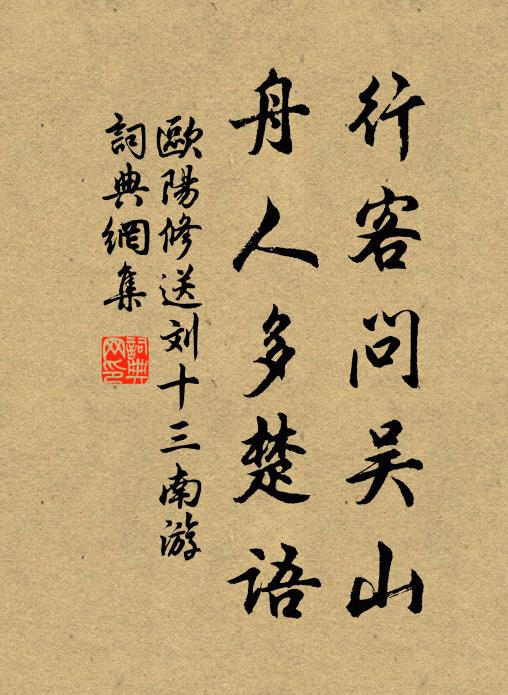 行客问吴山
舟人多楚语
歐陽修送刘十三南游
詞典網集
詞典网印